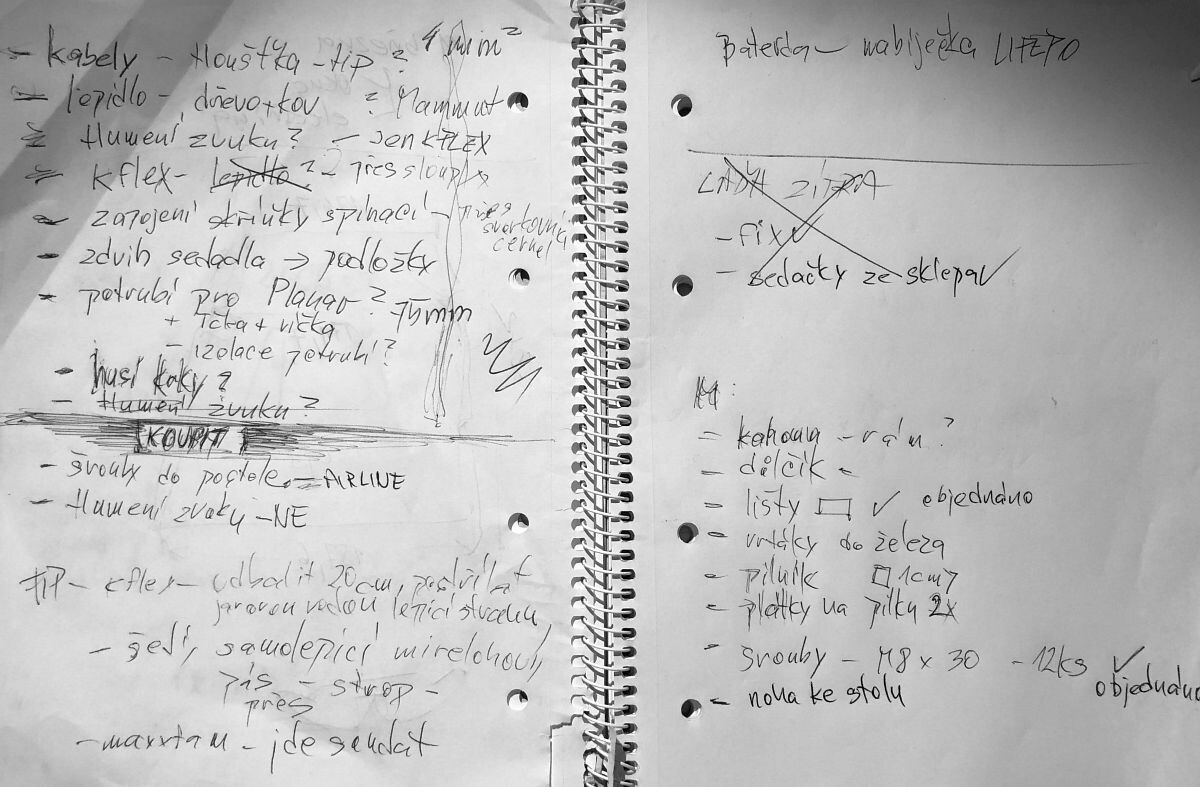 - kabely - tloušťka - tip? 4 mm²
- lepidlo - dřevo+kov ? Mammut
- tlumení zvuku? - jen KFLEX
- kflex- lepidlo? - přes sloupky
- zapojení skříňky spínací - přes svorkovnici
- zdvih sedadla → podložky
- potrubí pro Planar? 75mm
+ Tčka + víčka
- izolace potrubí?
- husí krky?
- tlumení zvuku?
KOUPIT
- šrouby do postele - = AIRLINE
- tlumení zvuku - NE
TIP - kflex - odbalit 20cm, postříkat
jarovou vodou lepící stranu,
- šedí, samolepící mirelonový
pás - strop -
přes
- maxxfan - jde sundat
Baterka - nabíječka LIFEPO
LÁĎA ZÍTRA
- fixy
- sedačky ze sklepa ✓
M:
- kahoun - rám?
- důlčík -
- listy ▭ ✓ objednáno
- vrtáky do železa
- pilník □ 1cm?
- plátky na pilku 2x
- šrouby - M8 x 30 - 12ks ✓
objednáno
- noha ke stolu